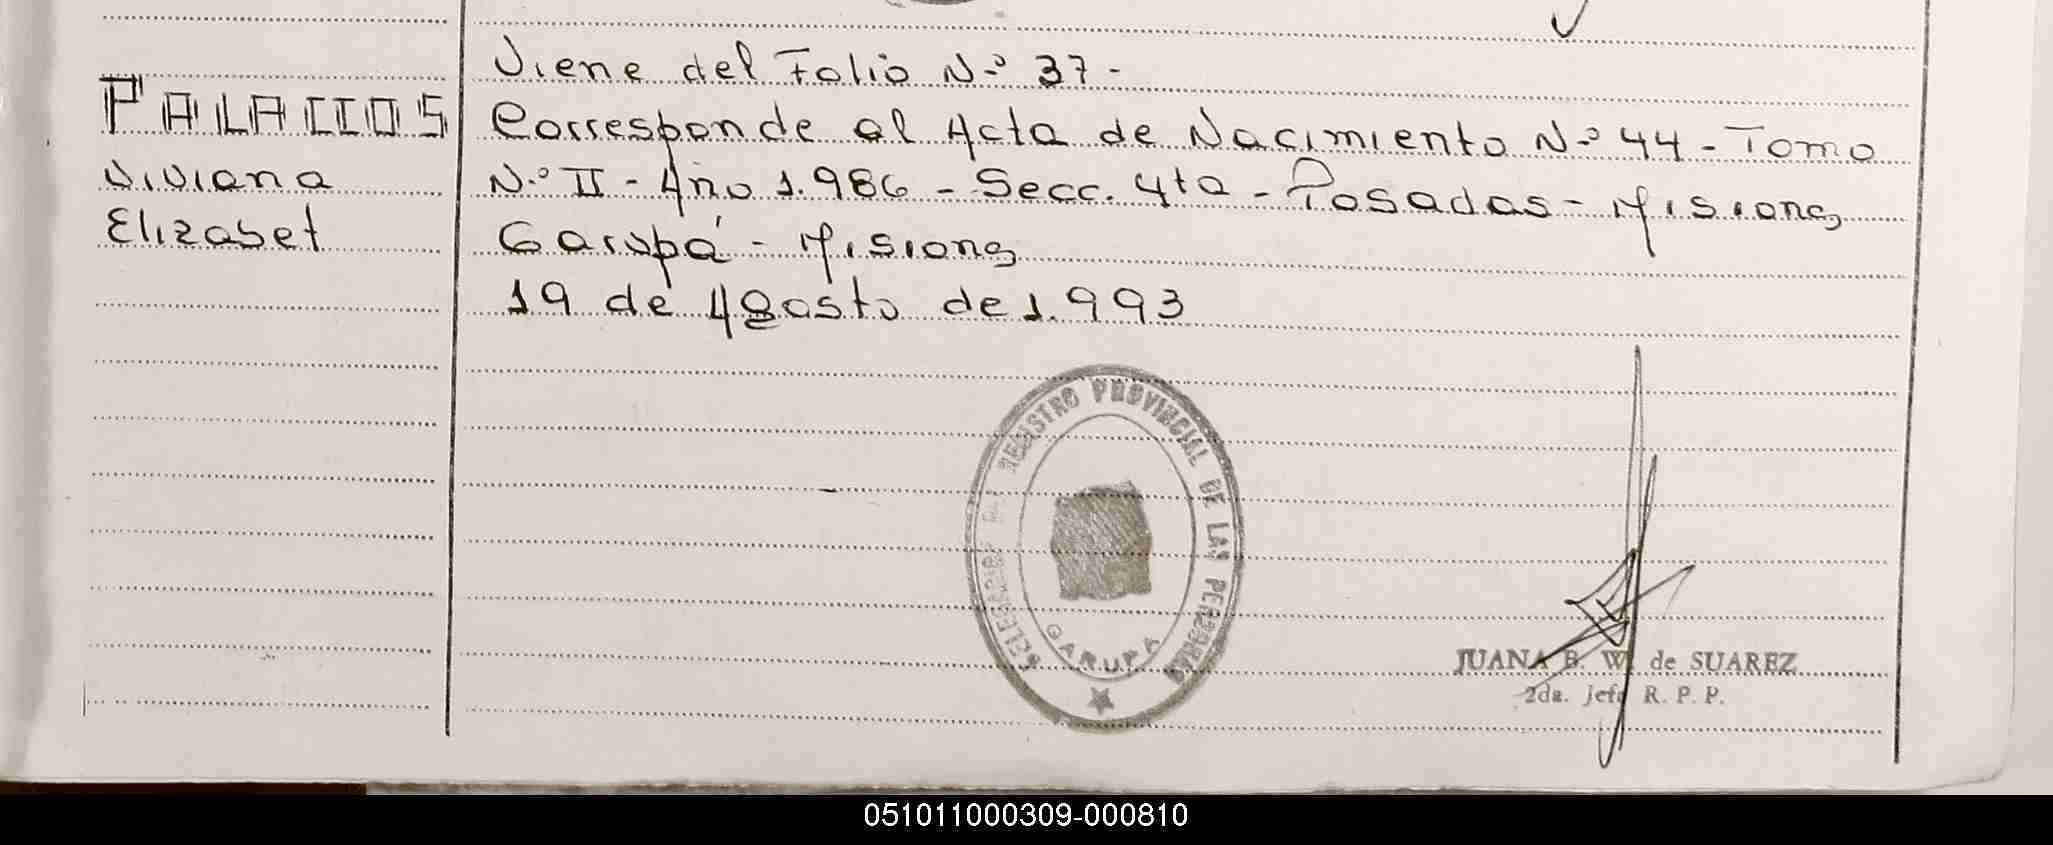 Viene del Folio N.º 37-
PALACIOS
Corresponde al Acta de Nacimiento N.º 44 - Tomo
Viviana
N.º II - Año 1.986 - Secc. 4ta - Posadas - Misiones
Elizabet
Garupá - Misiones
19 de Agosto de 1.993
REGISTRO PROVINCIAL DE LAS PERSONAS
GARUPA
JUANA B. W. de SUAREZ
2da. Jefe R. P. P.
051011000309-000810